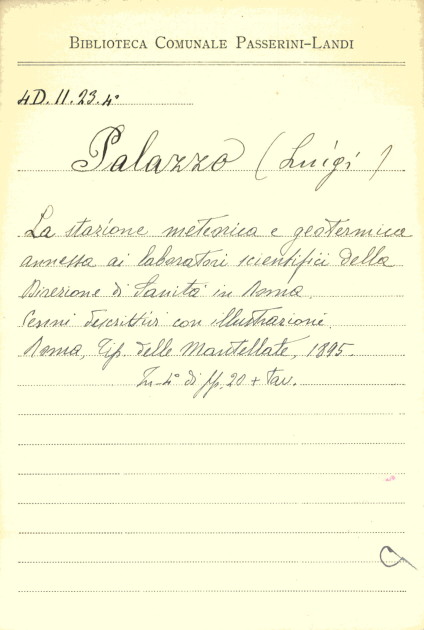 BIBLIOTECA COMUNALE PASSERINI-LANDI
4D.II.23.4°
Palazzo (Luigi)
La stazione meteorica e geotermica
annessa ai laboratori scientifici della
Direzione di Sanità in Roma.
Cenni descrittivi con illustrazioni.
Roma, Tip. delle Mantellate, 1895.
In-4° di pp. 20 + tav.